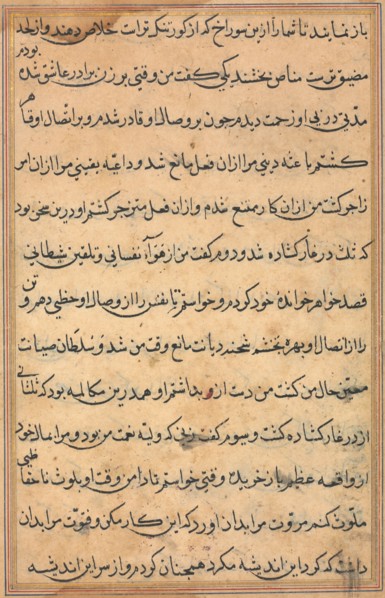 باز نمایند تا شما را ازین سوراخ که از کور تنکترست خلاص دهند و از لحد
مضیق ترست مناص بخشند یکی کفت من وقتی بر زن برادر عاشق شده بودم
مدتی در پی او زحمت دیدم چون بر وصال او قادر شدم و بر اتصال او قایم
کشتم باعثه دینی مرا ازان فعل مانع شد و داعیه یقینی مرا ازان امر
زاجر کشت من ازان کار ممتنع شدم و ازان فعل منزجر کشتم او درین سخن بود
که ثلث در غار کشاده شد و دوم کفت من از هواء نفسانی و تلقین شیطانی
قصد خواهر خوانده خود کردم و خواستم تا نفس را از وصال او حظی دهم و تن
را از اتصال او بهره بخشم شحنه دیانت مانع وقت من شد و سلطان صیانت
محتسب حال من کشت من دست ازو بداشتم او هم درین مکالمه بود که ثلثانی
از در غار کشاده کشت و سیوم کفت زنی که ولیه نعمت من بود و مرا بمال خود
از واقعه عظیم باز خریده وقتی خواستم تا دامن وقت او بلوث ناحفاظی
ملوث کنم مروت مرا بدان آورد که این کار مکن و فتوت مرا بدان
داشت که کرد این اندیشه مکرد همچنان کردم و از سر این اندیشه